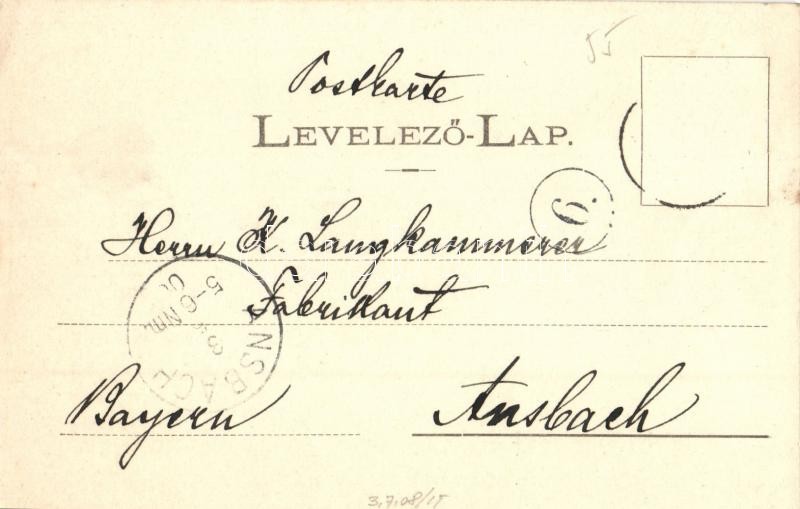 55
Postkarte
LEVELEZŐ-LAP.
9.
Herrn K. Langkammerer
Fabrikant
ANSBACH
5-6 NM.
Bayern Ansbach
3,7,08/15